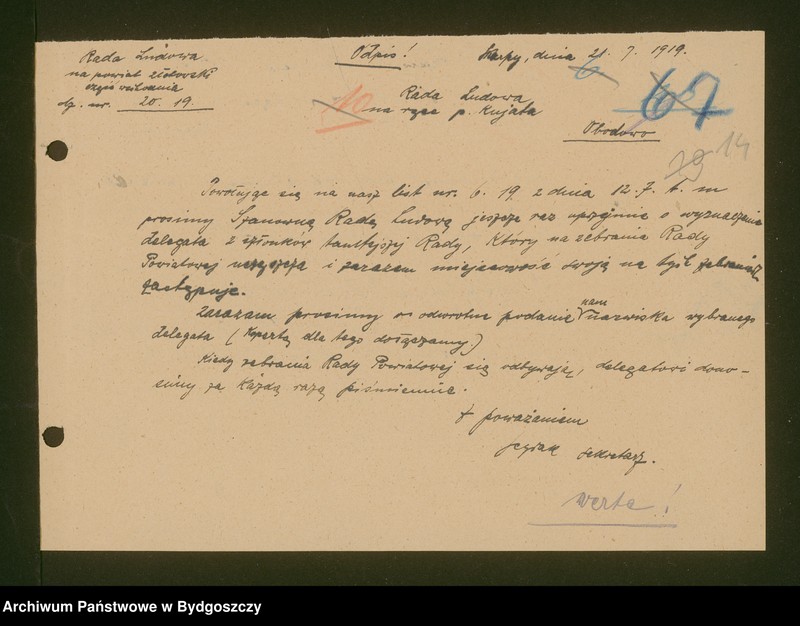 Rada Ludowa
na powiat złotowski
część wschodnia
dz. nr. 20. 19.
Odpis!
Skarpy, dnia 21. 7. 1919.
6
10
67
Rada Ludowa
na ręce p. Kujata
Obodowo
14
Powołując się na nasz list nr. 6. 19 z dnia 12. 7. b. m
prosimy Szanowną Radę Ludową jeszcze raz uprzejmie o wyznaczenie
delegata z członków tamtejszej Rady, który na zebrania Rady
Powiatowej uczęszcza i zarazem miejscowość swoją na tych zebraniach
zastępuje.
Zarazem prosimy o odwrotne podanie nam nazwiska wybranego
delegata (Kopertę dla tego dołączamy.)
Kiedy zebrania Rady Powiatowej się odbywają, delegatowi dono-
simy za każdą razą piśmiennie.
Z poważaniem
sekretarz.
verte!
Archiwum Państwowe w Bydgoszczy